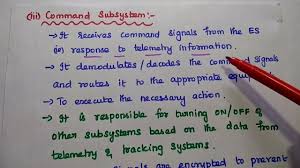 (iii) Command Subsystem:-
→ It receives command signals from the ES
(ie) response to telemetry information.
→ It demodulates/decodes the command signals
and routes it to the appropriate
→ To execute the necessary action.
→ It is responsible for turning ON/OFF of
other subsystems based on the data from
telemetry & tracking systems.
signals are encrypted to prevent